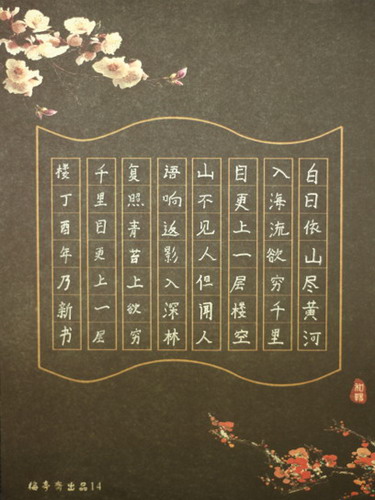 白日依山尽黄河
入海流欲穷千里
目更上一层楼空
山不见人但闻人
语响返影入深林
复照青苔上欲穷
千里目更上一层
楼丁酉年乃新书
出品14